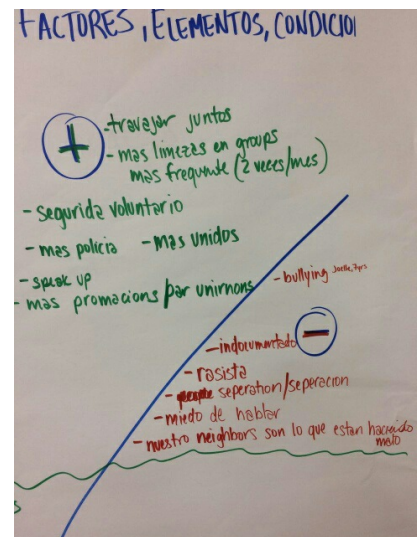 FACTORES, ELEMENTOS, CONDICIO
+
- travajar juntos
- mas limezas en groups
mas frequnte (2 veces/mes)
- segurida voluntario
- mas policia - mas unidos
- speak up
- mas promacions par unirnons
- bullying Joelle, 7yrs
-
- indocumentado
- rasista
- seperation/seperacion
- miedo de hablar
- nuestro neighbors son lo que estan haciendo
malo
s